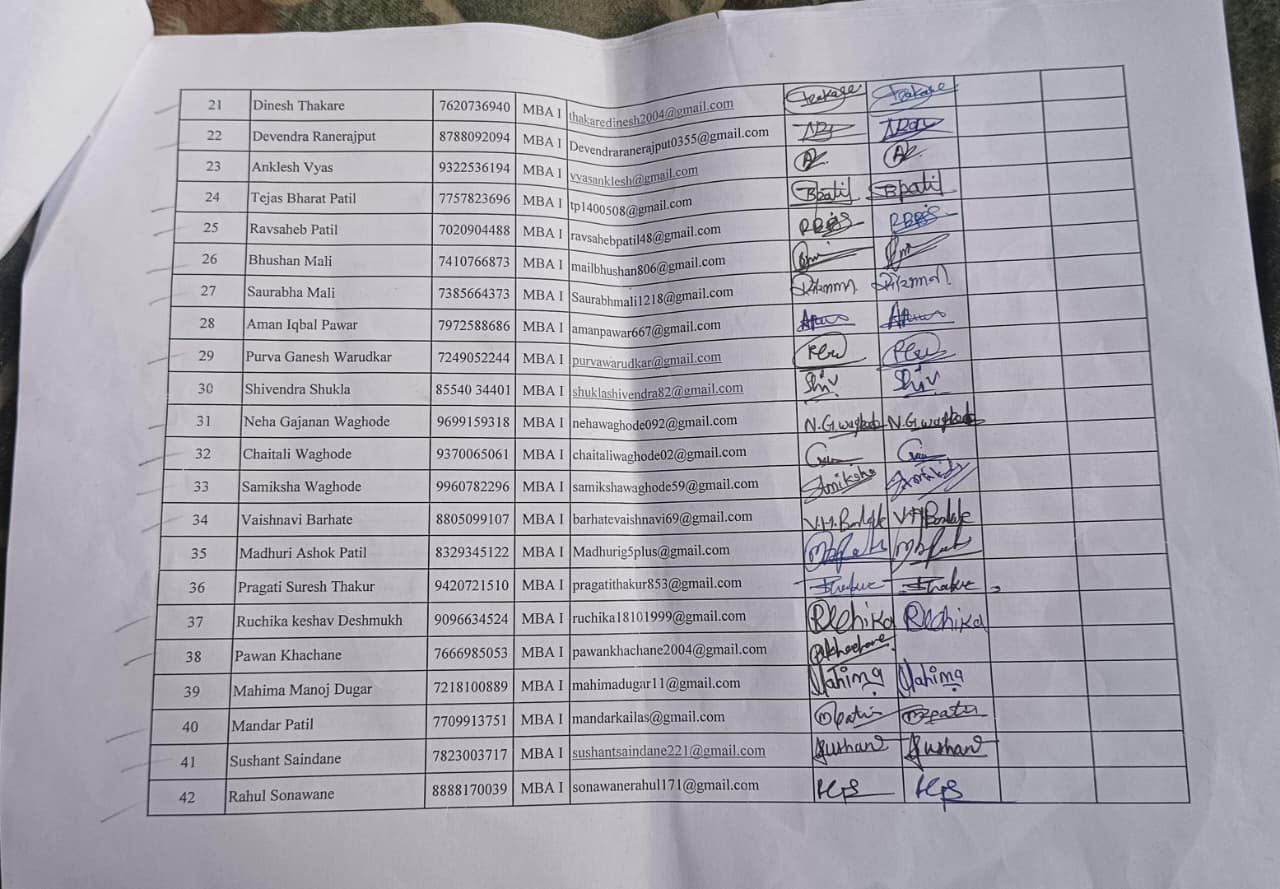 21 Dinesh Thakare 7620736940 MBA I thakaredinesh2004@gmail.com Teakare Teakare
22 Devendra Ranerajput 8788092094 MBA I Devendraranerajput0355@gmail.com
23 Anklesh Vyas 9322536194 MBA I vyasanklesh@gmail.com
24 Tejas Bharat Patil 7757823696 MBA I tp1400508@gmail.com TBPatil TBPatil
25 Ravsaheb Patil 7020904488 MBA I ravsahebpatil48@gmail.com
26 Bhushan Mali 7410766873 MBA I mailbhushan806@gmail.com
27 Saurabha Mali 7385664373 MBA I Saurabhmali1218@gmail.com
28 Aman Iqbal Pawar 7972588686 MBA I amanpawar667@gmail.com
29 Purva Ganesh Warudkar 7249052244 MBA I purvawarudkar@gmail.com
30 Shivendra Shukla 85540 34401 MBA I shuklashivendra82@gmail.com Shiv Shiv
31 Neha Gajanan Waghode 9699159318 MBA I nehawaghode092@gmail.com N.G.waghode N.G.waghode
32 Chaitali Waghode 9370065061 MBA I chaitaliwaghode02@gmail.com
33 Samiksha Waghode 9960782296 MBA I samikshawaghode59@gmail.com Samiksha
34 Vaishnavi Barhate 8805099107 MBA I barhatevaishnavi69@gmail.com V.H.Barhate V.H.Barhate
35 Madhuri Ashok Patil 8329345122 MBA I Madhurig5plus@gmail.com
36 Pragati Suresh Thakur 9420721510 MBA I pragatithakur853@gmail.com
37 Ruchika keshav Deshmukh 9096634524 MBA I ruchika18101999@gmail.com Ruchika Ruchika
38 Pawan Khachane 7666985053 MBA I pawankhachane2004@gmail.com Pkhachane
39 Mahima Manoj Dugar 7218100889 MBA I mahimadugar11@gmail.com Mahima Mahima
40 Mandar Patil 7709913751 MBA I mandarkailas@gmail.com
41 Sushant Saindane 7823003717 MBA I sushantsaindane221@gmail.com Sushant Sushant
42 Rahul Sonawane 8888170039 MBA I sonawanerahul171@gmail.com